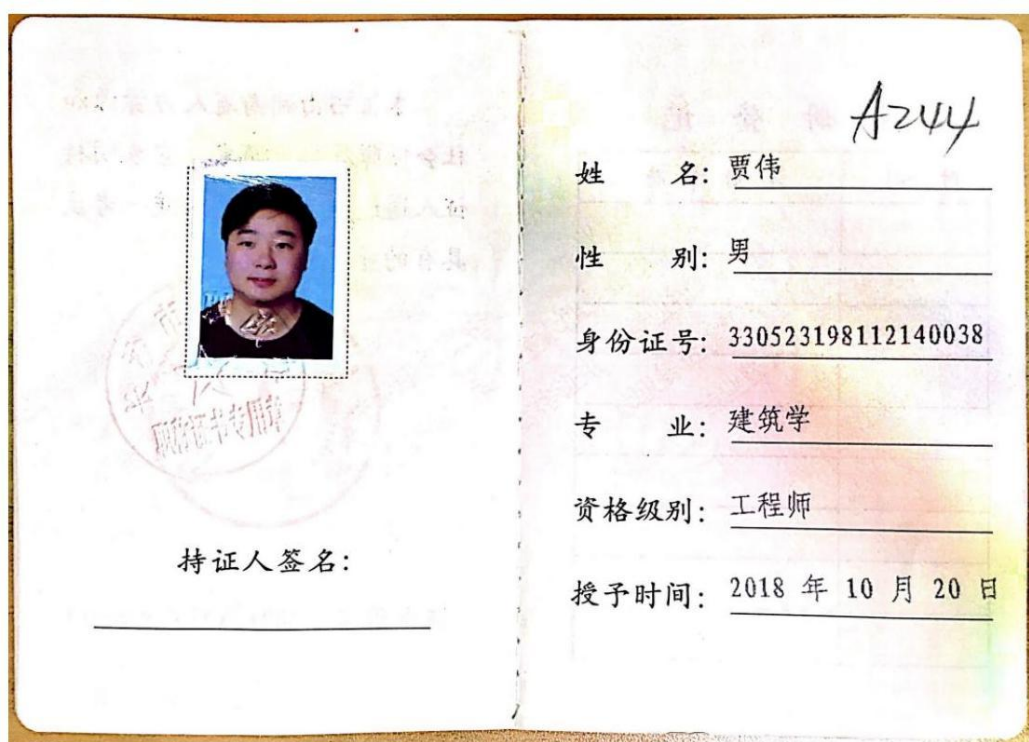 持证人签名:
A244
姓 名: 贾伟
性 别: 男
身份证号: 330523198112140038
专 业: 建筑学
资格级别: 工程师
授予时间: 2018 年 10 月 20 日